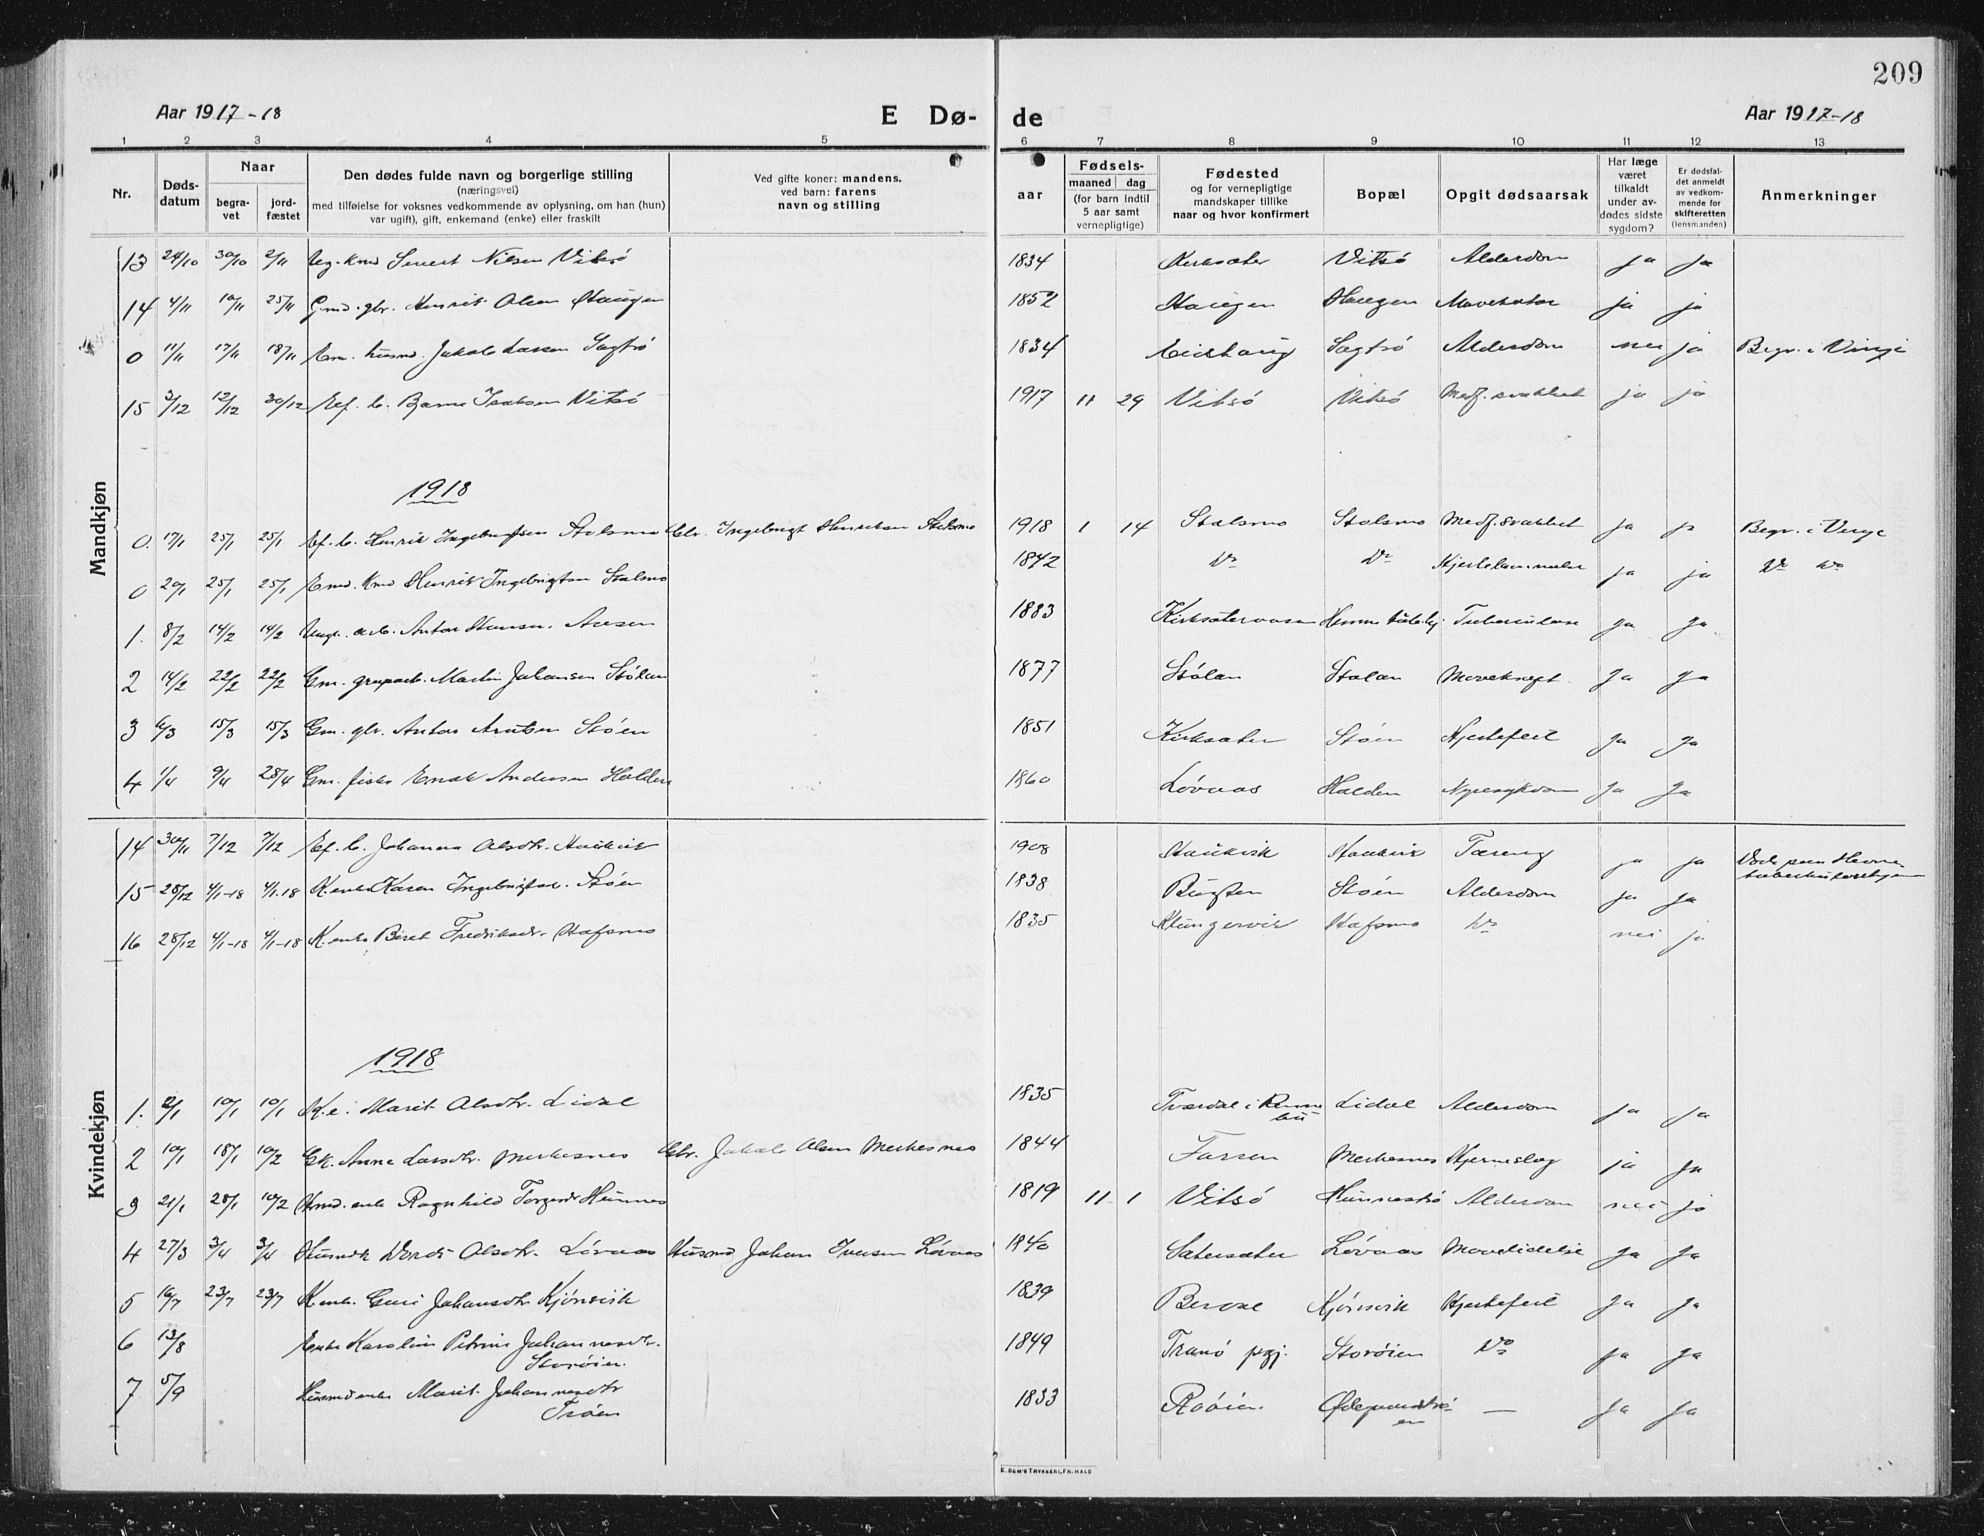 209
Aar 1917-18 E Dø- de Aar 1917-18
1 2 3 4 5 6 7 8 9 10 11 12 13
Nr. Døds-datum Naar begra-vet jord-fæstet
Den dødes fulde navn og borgerlige stilling
(næringsvei)
med tilføielse for voksnes vedkommende av oplysning, om han (hun)
var ugift), gift, enkemand (enke) eller fraskilt
Ved gifte koner: mandens,
ved barn: farens
navn og stilling
aar
Fødsels-
maaned dag
(for barn indtil
5 aar samt
vernepligtige)
Fødested
og for vernepligtige
mandskaper tillike
naar og hvor konfirmert
Bopæl
Opgit dødsaarsak
Har læge
været
tilkaldt
under av-
dødes sidste
sygdom?
Er dødsfal-
det anmeldt
av vedkom-
mende før
skifteretten
(lensmanden)
Anmerkninger
Mandkjøn
13 24/10 30/10 2/11 Sivert Nilsen Vitsø 1834 Kirksæter Vitsø Alderdom ja ja
14 4/11 10/11 25/11 Gmd. gbr. Henrik Olsen Haugen 1852 Haugen Haugen ja ja
0 11/11 17/11 18/11 Em. husmd. Jakob Larsen Sagtrø 1834 Eidshaug Sagtrø Alderdom nei ja Begr. i Vinje
15 3/12 12/12 30/12 Barne Isaksen Vitsø 1917 11 29 Vitsø Vitsø Medf. svakhet ja ja
1918
0. 17/1 25/1 25/1 Henrik Ingebrigtsen Stolsmo Gbr. Ingebrigt Henriksen Stolsmo 1918 1 14 Stolsmo Stolsmo Medf. svakhet ja ja Begr. i Vinje
0 20/1 25/1 25/1 Henrik Ingebrigtsen Stolsmo 1842 Do Do Hjertelammelse ja ja Do Do
1. 8/2 14/2 14/2 Anton Hansen Aasen 1883 Tuberkulose ja ja
2 14/2 22/2 22/2 Gm. Martin Johansen Stølan 1877 Stølan Stølan ja ja
3 6/3 15/3 15/3 Gm. gbr. Anton Arntsen Støen 1851 Kirksæter Støen Hjertefeil ja ja
4 1/4 9/4 28/4 Gm. fisker Andersen Halden 1860 Løvaas Halden Nyresykdom ja ja
Kvindekjøn
14 30/11 7/12 7/12 Johanna Olsdtr. Haukvik 1908 Haukvik Haukvik Tæring ja ja
15 28/12 4/1-18 4/1-18 K. enke Karen Ingebrigtsd. Støen 1838 Bugten Støen Alderdom ja ja
16 28/12 4/1-18 4/1-18 K. enke Beret Fredriksdr. Hafsmo 1835 Klungervik Hafsmo Do nei ja
1918
1. 2/1 10/1 10/1 K. e. Marit Olsdtr. Lidal 1835 Lidal Alderdom ja ja
2 10/1 18/1 10/2 Gk. Anne Larsdtr. Merkesnes Gbr. Jakob Olsen Merkesnes 1844 Merkesnes Hjerneslag ja ja
3 21/1 28/1 10/2 Ragnhild 1819 11 1 Vitsø Alderdom nei ja
4 27/3 3/4 3/4 Husmk. Olsdtr. Løvaas Husmd. Johan Iversen Løvaas 1840 Sætersæter Løvaas Mavelidelse ja ja
5 16/7 23/7 23/7 K. enke Guri Johansdtr. Kjønsvik 1839 Berdal Kjønsvik Hjertefeil ja ja
6 13/8 Enke Karoline Petrine Johannesdtr.
Storøien. 1849 Tranø pgj. Storøien Do ja ja
7 5/9 Husmdenke Marit Johannesdtr
Trøen 1833 Røøien. — ja ja